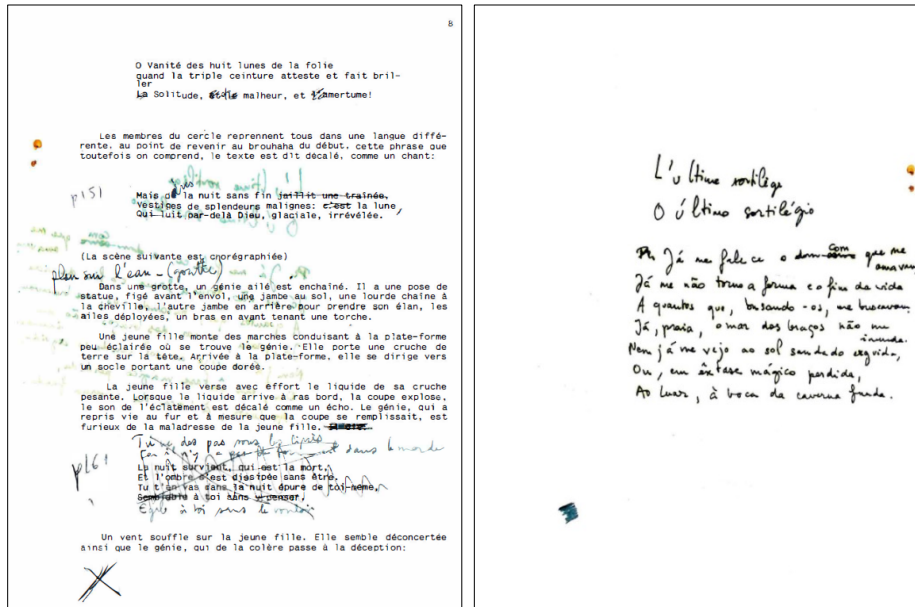 8
O Vanité des huit lunes de la folie
quand la triple ceinture atteste et fait bril-
ler
La Solitude, malheur, et l'amertume!
Les membres du cercle reprennent tous dans une langue diffé-
rente, au point de revenir au brouhaha du début, cette phrase que
toutefois on comprend, le texte est dit décalé, comme un chant:
p151
Mais de la nuit sans fin jaillit une traînée,
Vestiges de splendeurs malignes: c'est la lune,
Qui luit par-delà Dieu, glaciale, irrévélée.
(La scène suivante est chorégraphiée)
plan sur l'eau - (goutte)
Dans une grotte, un génie ailé est enchaîné. Il a une pose de
statue, figé avant l'envol, une jambe au sol, une lourde chaîne à
la cheville, l'autre jambe en arrière pour prendre son élan, les
ailes déployées, un bras en avant tenant une torche.
Une jeune fille monte des marches conduisant à la plate-forme
peu éclairée où se trouve le génie. Elle porte une cruche de
terre sur la tête. Arrivée à la plate-forme, elle se dirige vers
un socle portant une coupe dorée.
La jeune fille verse avec effort le liquide de sa cruche
pesante. Lorsque le liquide arrive à ras bord, la coupe explose,
le son de l'éclatement est décalé comme un écho. Le génie, qui a
repris vie au fur et à mesure que la coupe se remplissait, est
furieux de la maladresse de la jeune fille.
des pas sous les cyprès
dans le monde
p161
La nuit survient, qui est la mort,
Et l'ombre s'est dissipée sans être,
Tu t'en vas dans la nuit épure de toi-même,
Semblable à toi sans penser,
Égale à toi sans le vouloir
Un vent souffle sur la jeune fille. Elle semble déconcertée
ainsi que le génie, qui de la colère passe à la déception:
L'ultime sortilège
O último sortilégio
Já me falece o dom com que me
amavam
Já me não torno a forma e o fim da vida
A quantos que, buscando-os, me buscavam
Já, praia, o mar dos braços não me
inunda.
Nem já me vejo ao sol saudado erguida,
Ou, em êxtase mágico perdida,
Ao luar, à boca da caverna funda.